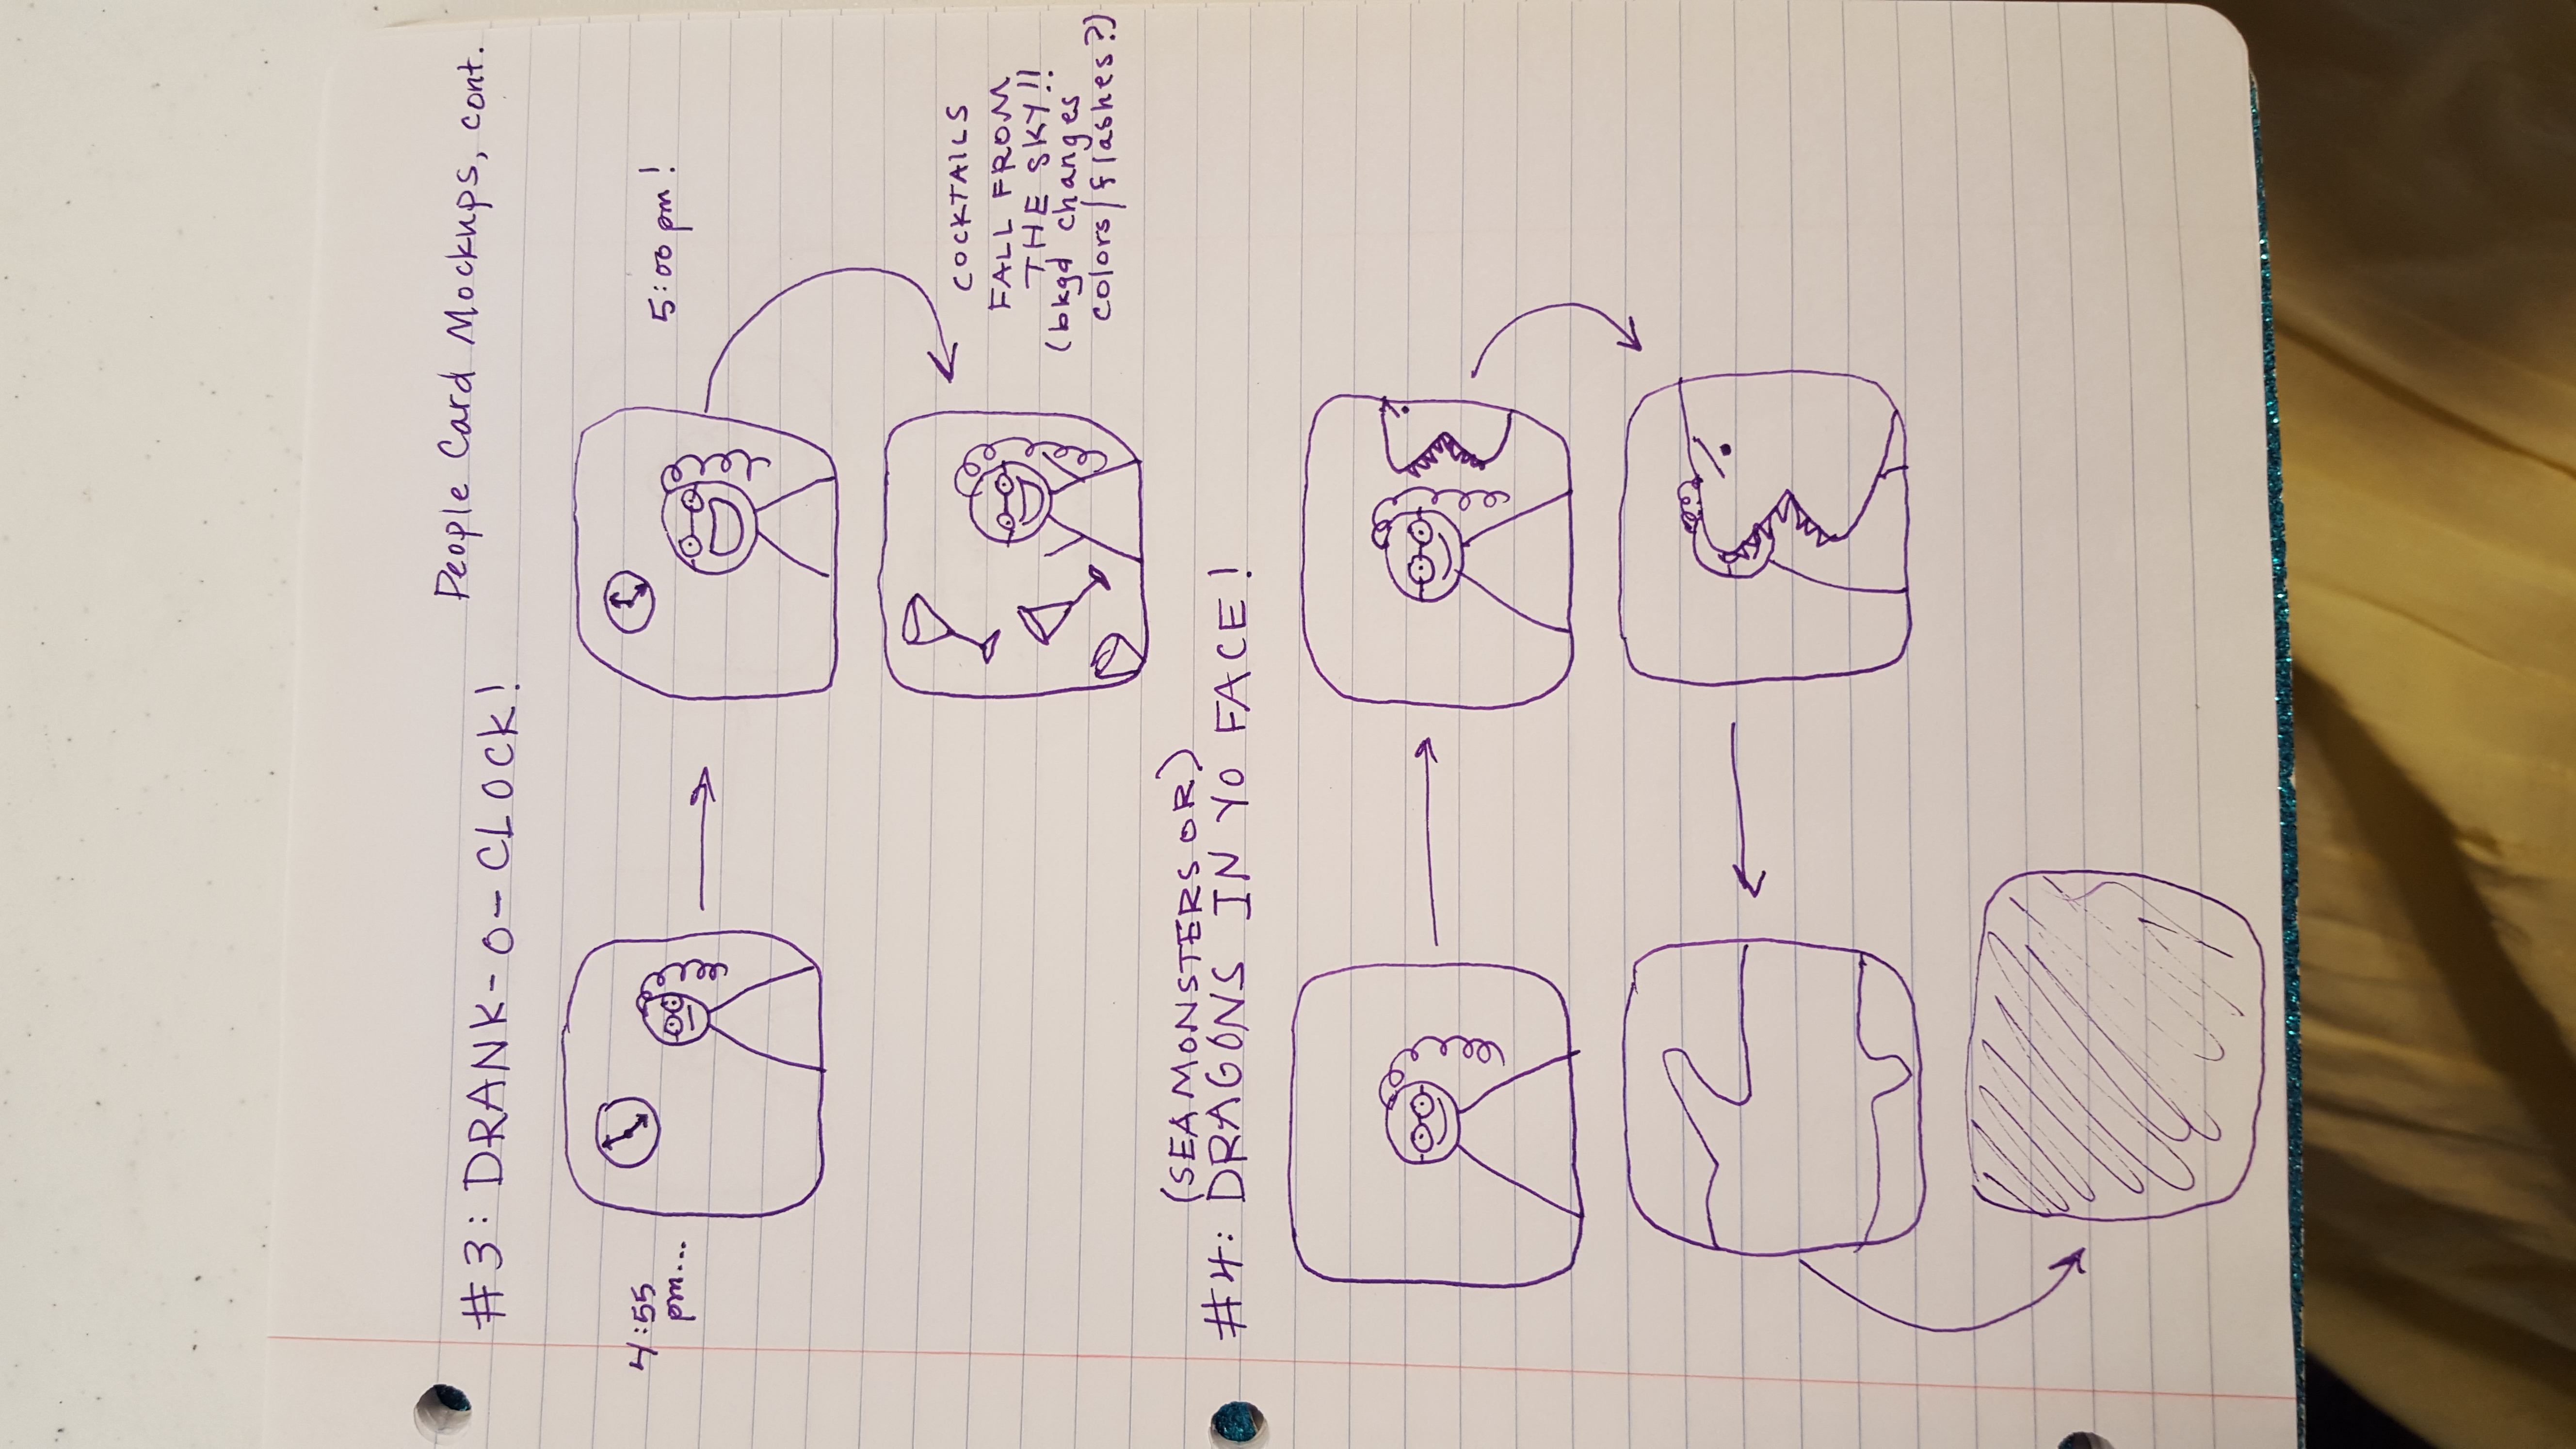 People Card Mockups, cont.
#3: DRANK-O-CLOCK!
4:55
pm...
5:00pm!
COCKTAILS
FALL FROM
THE SKY!!
(bkgd changes
colors/flashes?)
(SEAMONSTERS OR)
#4: DRAGONS IN YO FACE!